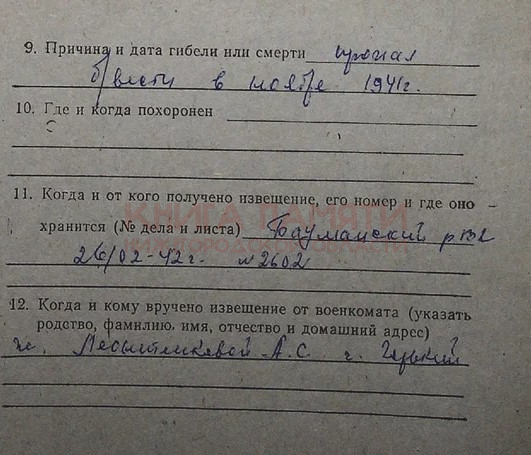 9. Причина и дата гибели или смерти пропал
б/вести в ноябре 1941г.
10. Где и когда похоронен
11. Когда и от кого получено извещение, его номер и где оно
хранится (№ дела и листа) Бауманский рвк
26/02-42г. №2602
12. Когда и кому вручено извещение от военкомата (указать
родство, фамилию, имя, отчество и домашний адрес)
А.С. г. Горький
КНИГА ПАМЯТИ